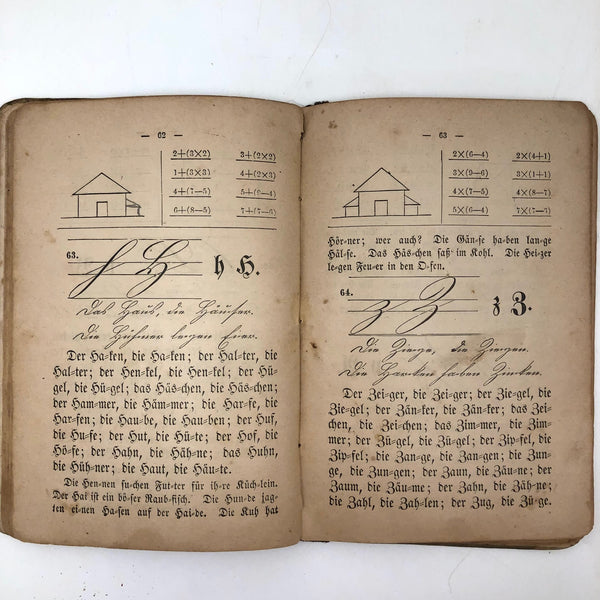 — 62 —
2+(3×2) 3+(2×2)
1+(3×3) 4+(2×3)
4+(7—5) 5+(6—4)
6+(8—5) 7+(7—6)
63.
h H.
Das Haus, die Häuser.
Die Hühner legen Eier.
Der Ha⸗ken, die Ha⸗ken; der Hal⸗ter, die
Hal⸗ter; der Hen⸗kel, die Hen⸗kel; der Hü⸗
gel, die Hü⸗gel; das Häs⸗chen, die Häs⸗chen;
der Ham⸗mer, die Häm⸗mer; die Har⸗fe, die
Har⸗fen; die Hau⸗be, die Hau⸗ben; der Huf,
die Hu⸗fe; der Hut, die Hü⸗te; der Hof, die
Hö⸗fe; der Hahn, die Häh⸗ne; das Huhn,
die Hüh⸗ner; die Haut, die Häu⸗te.
Die Hen⸗nen ſu⸗chen Fut⸗ter für ih⸗re Küch⸗lein.
Der Hai iſt ein bö⸗ſer Raub⸗fiſch. Die Hun⸗de jag⸗
ten ei⸗nen Ha⸗ſen auf der Hai⸗de. Die Kuh hat
— 63 —
2×(6—4) 2×(4+1)
3×(9—6) 3×(1+1)
4×(7—5) 4×(8—7)
5×(6—4) 7×(7—7)
Hör⸗ner; wer auch? Die Gän⸗ſe ha⸗ben lan⸗ge
Häl⸗ſe. Das Häs⸗chen ſaß im Kohl. Die Hei⸗zer
le⸗gen Feu⸗er in den O⸗fen.
64.
z Z.
Die Ziege, die Ziegen.
Die Harken haben Zinken.
Der Zei⸗ger, die Zei⸗ger; der Zie⸗gel, die
Zie⸗gel; der Zän⸗ker, die Zän⸗ker; das Zei⸗
chen, die Zei⸗chen; das Zim⸗mer, die Zim⸗
mer; der Zü⸗gel, die Zü⸗gel; der Zip⸗fel, die
Zip⸗fel; die Zan⸗ge, die Zan⸗gen; die Zun⸗
ge, die Zun⸗gen; der Zaun, die Zäu⸗ne; der
Zaum, die Zäu⸗me; der Zahn, die Zäh⸗ne;
die Zahl, die Zah⸗len; der Zug, die Zü⸗ge.